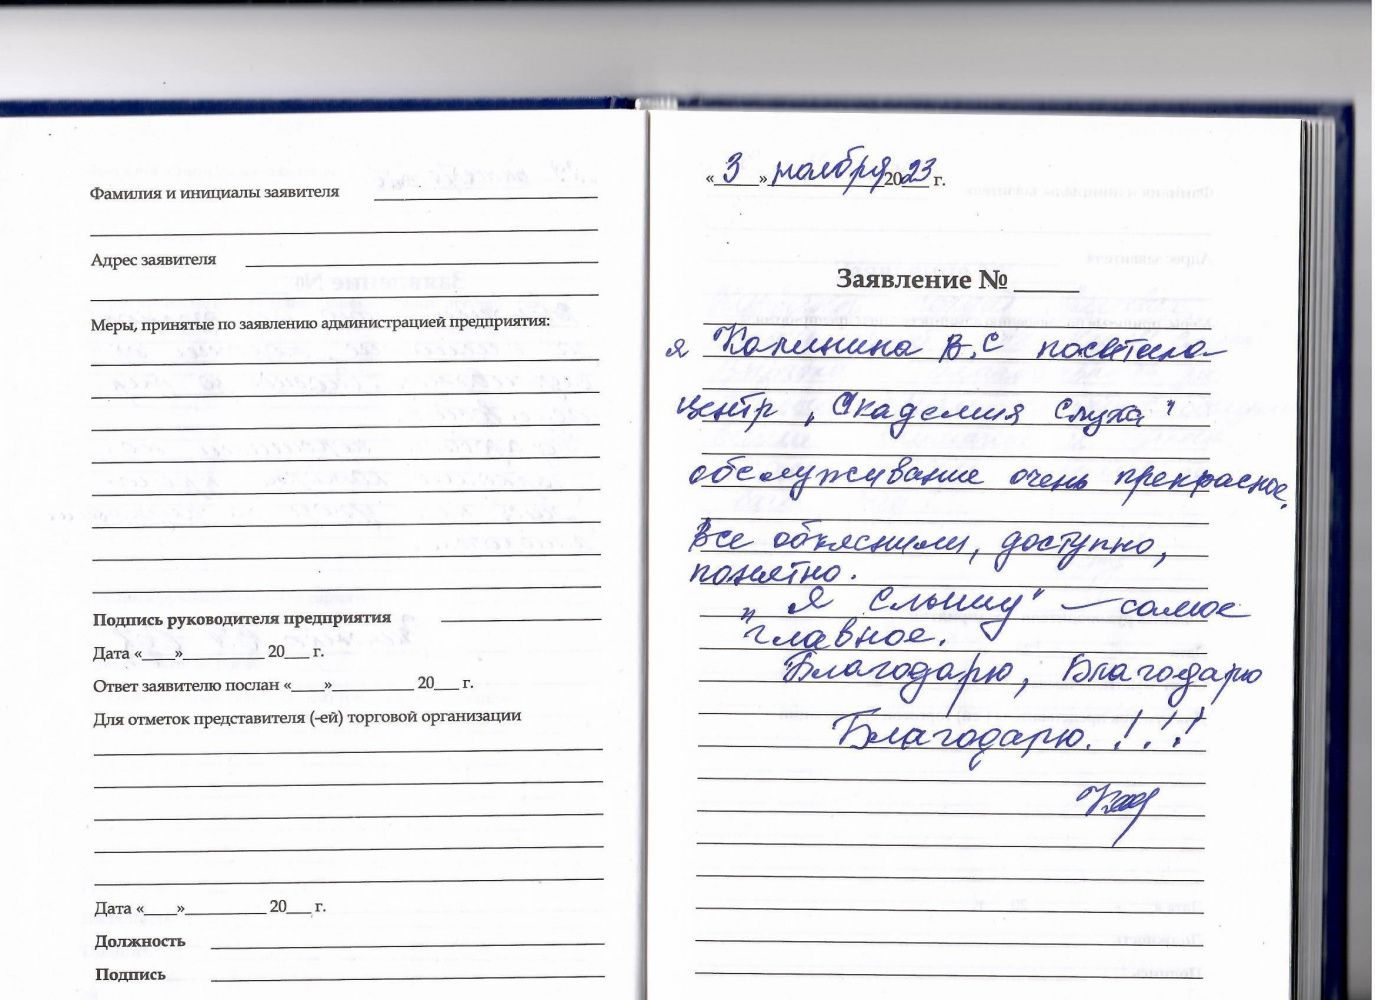 Фамилия и инициалы заявителя
Адрес заявителя
Меры, принятые по заявлению администрацией предприятия:
Подпись руководителя предприятия
Дата «___»__________ 20___ г.
Ответ заявителю послан «___»__________ 20___ г.
Для отметок представителя (-ей) торговой организации
Дата «___»__________ 20___ г.
Должность
Подпись
« 3 » ноября 2023 г.
Заявление № _____
я Калинина В.С посетила
центр „Академия слуха"
обслуживание очень прекрасное.
Все объяснили, доступно,
понятно.
„Я слышу" — самое
главное.
Благодарю, Благодарю
Благодарю.!.!.!